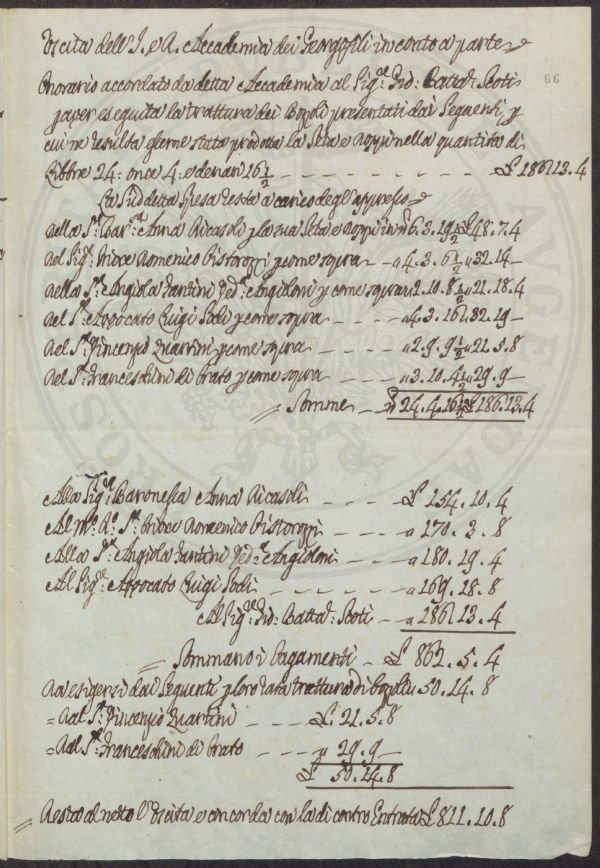 Uscita dell'I. e R. Accademia dei Georgofili in conto a parte
66
Onorario accordato da detta Accademia al Sig.re Gio: Batta: Scoti
p aver eseguita la trattura dei Bozzoli presentati dai Seguenti, p
cui ne resulta esserne stata prodotta la Seta e nella quantità di
Libbre 24: once 4: e denari 16 1/2 - - - - £ 186.13.4
La Suddetta Spesa resta a carico degl'appresso
Della S.ra Bar.sa Anna Ricasoli p la sua Seta e in 6.3.19 1/2 £ 48.7.4
Del Sig.re Domenico Pistorozzi p come sopra - " 4.3.6 1/2 " 32.14 -
Della S.ra Angiola Fantini Ved.a Angiloni p come sopra " 2.10.8 1/2 " 21.18.4
Del S.re Avvocato Luigi Sodi p come sopra - - - - " 4.3.16 " 32.19 -
Del S.re Vincenzio Martini p come sopra - - - " 2.9.9 1/2 " 21.5.8
Del S.re Franceschini di Prato p come sopra - - - " 3.10.4 1/2 " 29.9 -
= Somme - 24.4.16 1/2 £ 186.13.4
Alla Sig.ra Baronessa Anna Ricasoli - - - £ 254.10.4
Al M.o R.o S.re Domenico Pistorozzi - - " 170.3.8
Alla S.ra Angiola Fantini Ved.a Angiloni - - - " 180.19.4
Al Sig.re Avvocato Luigi Sodi - - - - - " 169.18.8
Al Sig.re Gio: Batta: Scoti - " 186.13.4
= Sommano i Pagamenti - £ 862.5.4
Da esigersi dai Seguenti p loro rata trattura di bozzoli " 50.14.8
= Dal S.re Vincenzio Martini - - - £. 21.5.8
= Dal S.re Franceschini di Prato - - - " 29.9 -
£ 50.14.8
= Resta al netto l'Uscita e concorda con la di contro Entrata £ 811.10.8